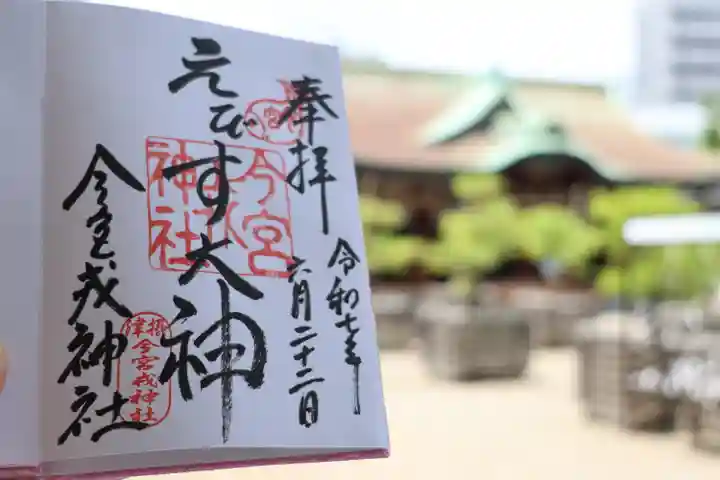 奉拝
令和七年
六月二十二日
えびす大神
今宮戎神社
今宮
神社
摂津
今宮戎神社